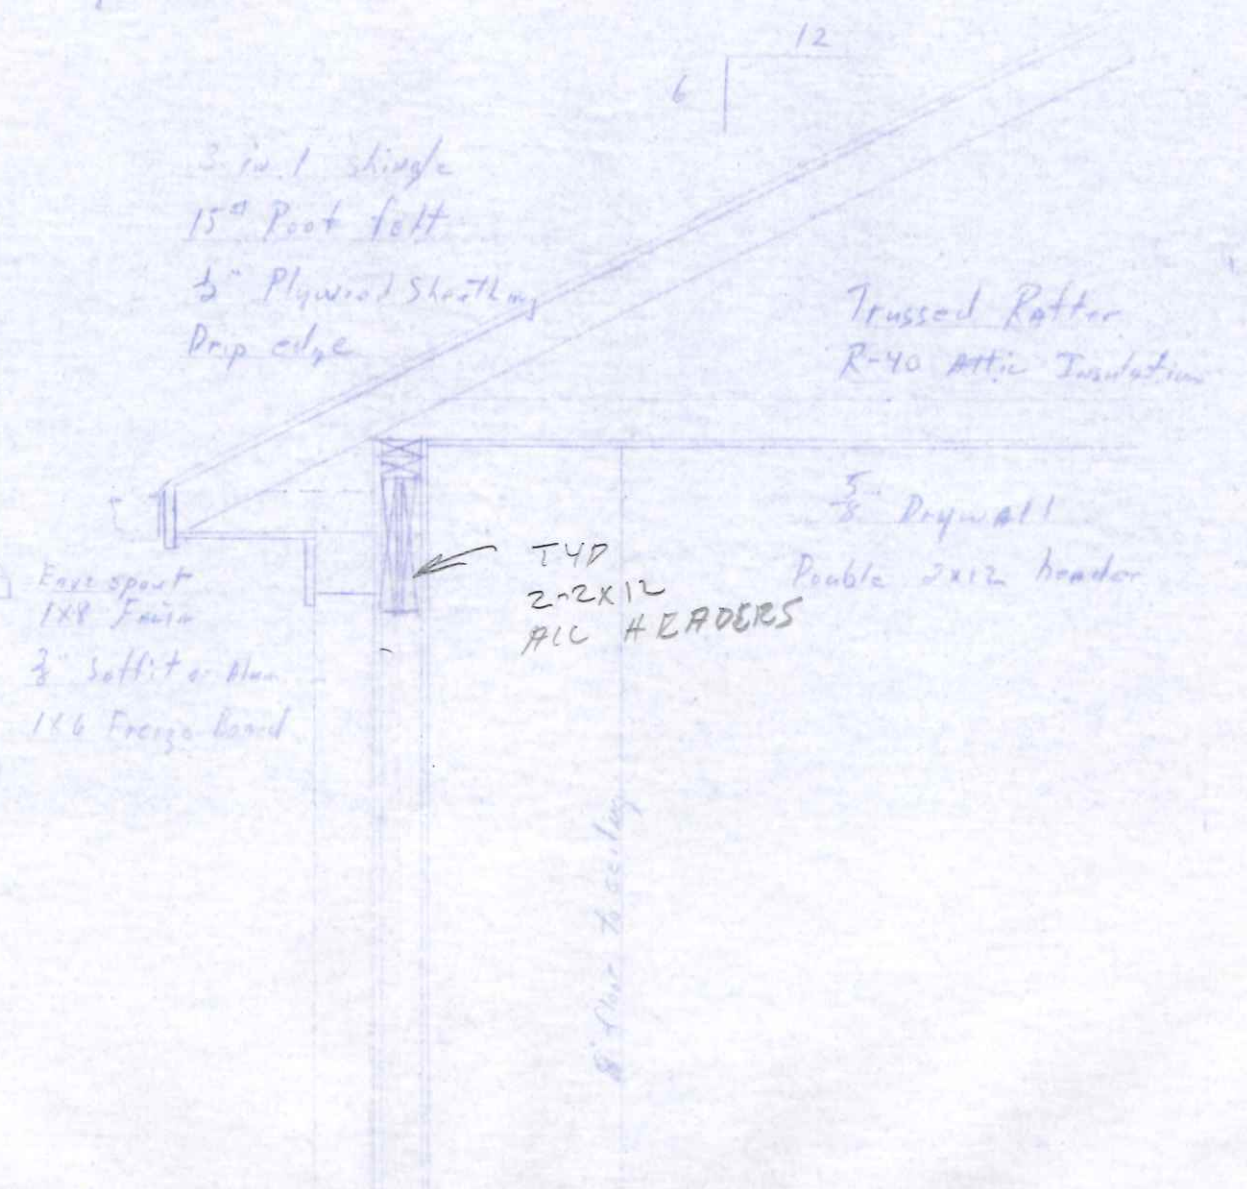 12
6
3 in 1 shingle
15# Roof felt
½" Plywood Sheathing
Drip edge
Trussed Rafter
R-40 Attic Insulation
5/8" Drywall
Double 2x12 header
TYP
2-2x12
ALL HEADERS
Eave spout
1x8 Facia
Soffit or Alum
1x6 Freize Board
8' floor to ceiling